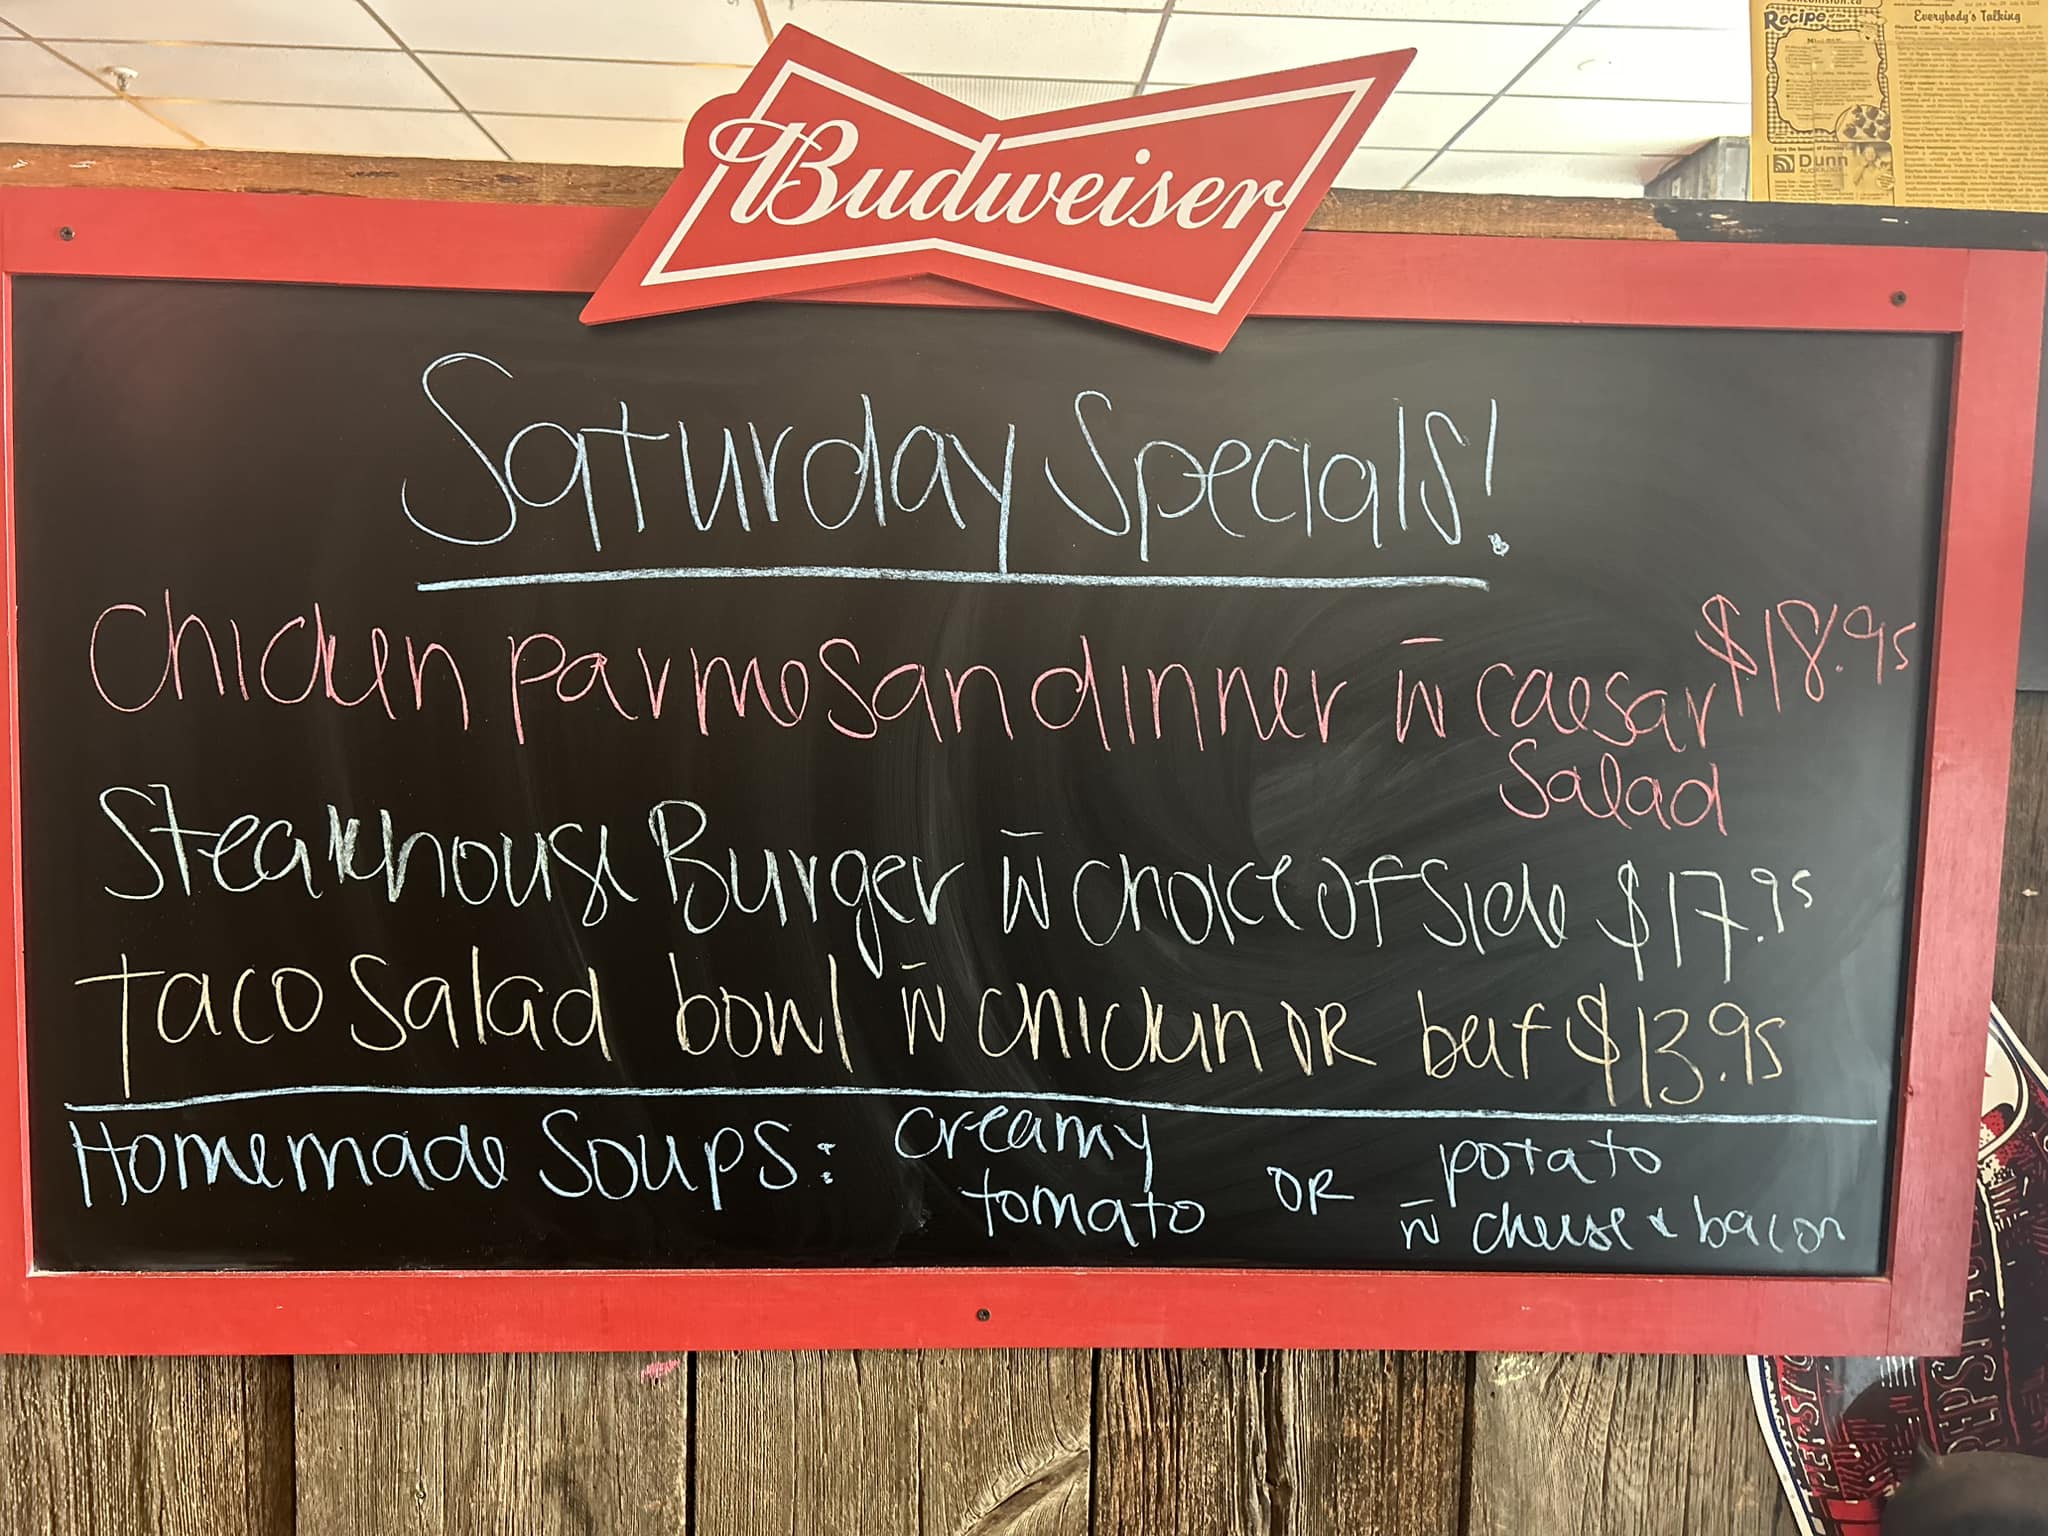 Recipe
Everybody's Talking
Dunn
Budweiser
Saturday Specials!
Chicken parmesan dinner w̄ caesar $18.95
Salad
Steakhouse Burger w̄ choice of side $17.95
Taco Salad bowl w̄ chicken OR beef $13.95
Homemade Soups: creamy tomato OR potato w̄ cheese & bacon
PEPSI
PEPSI